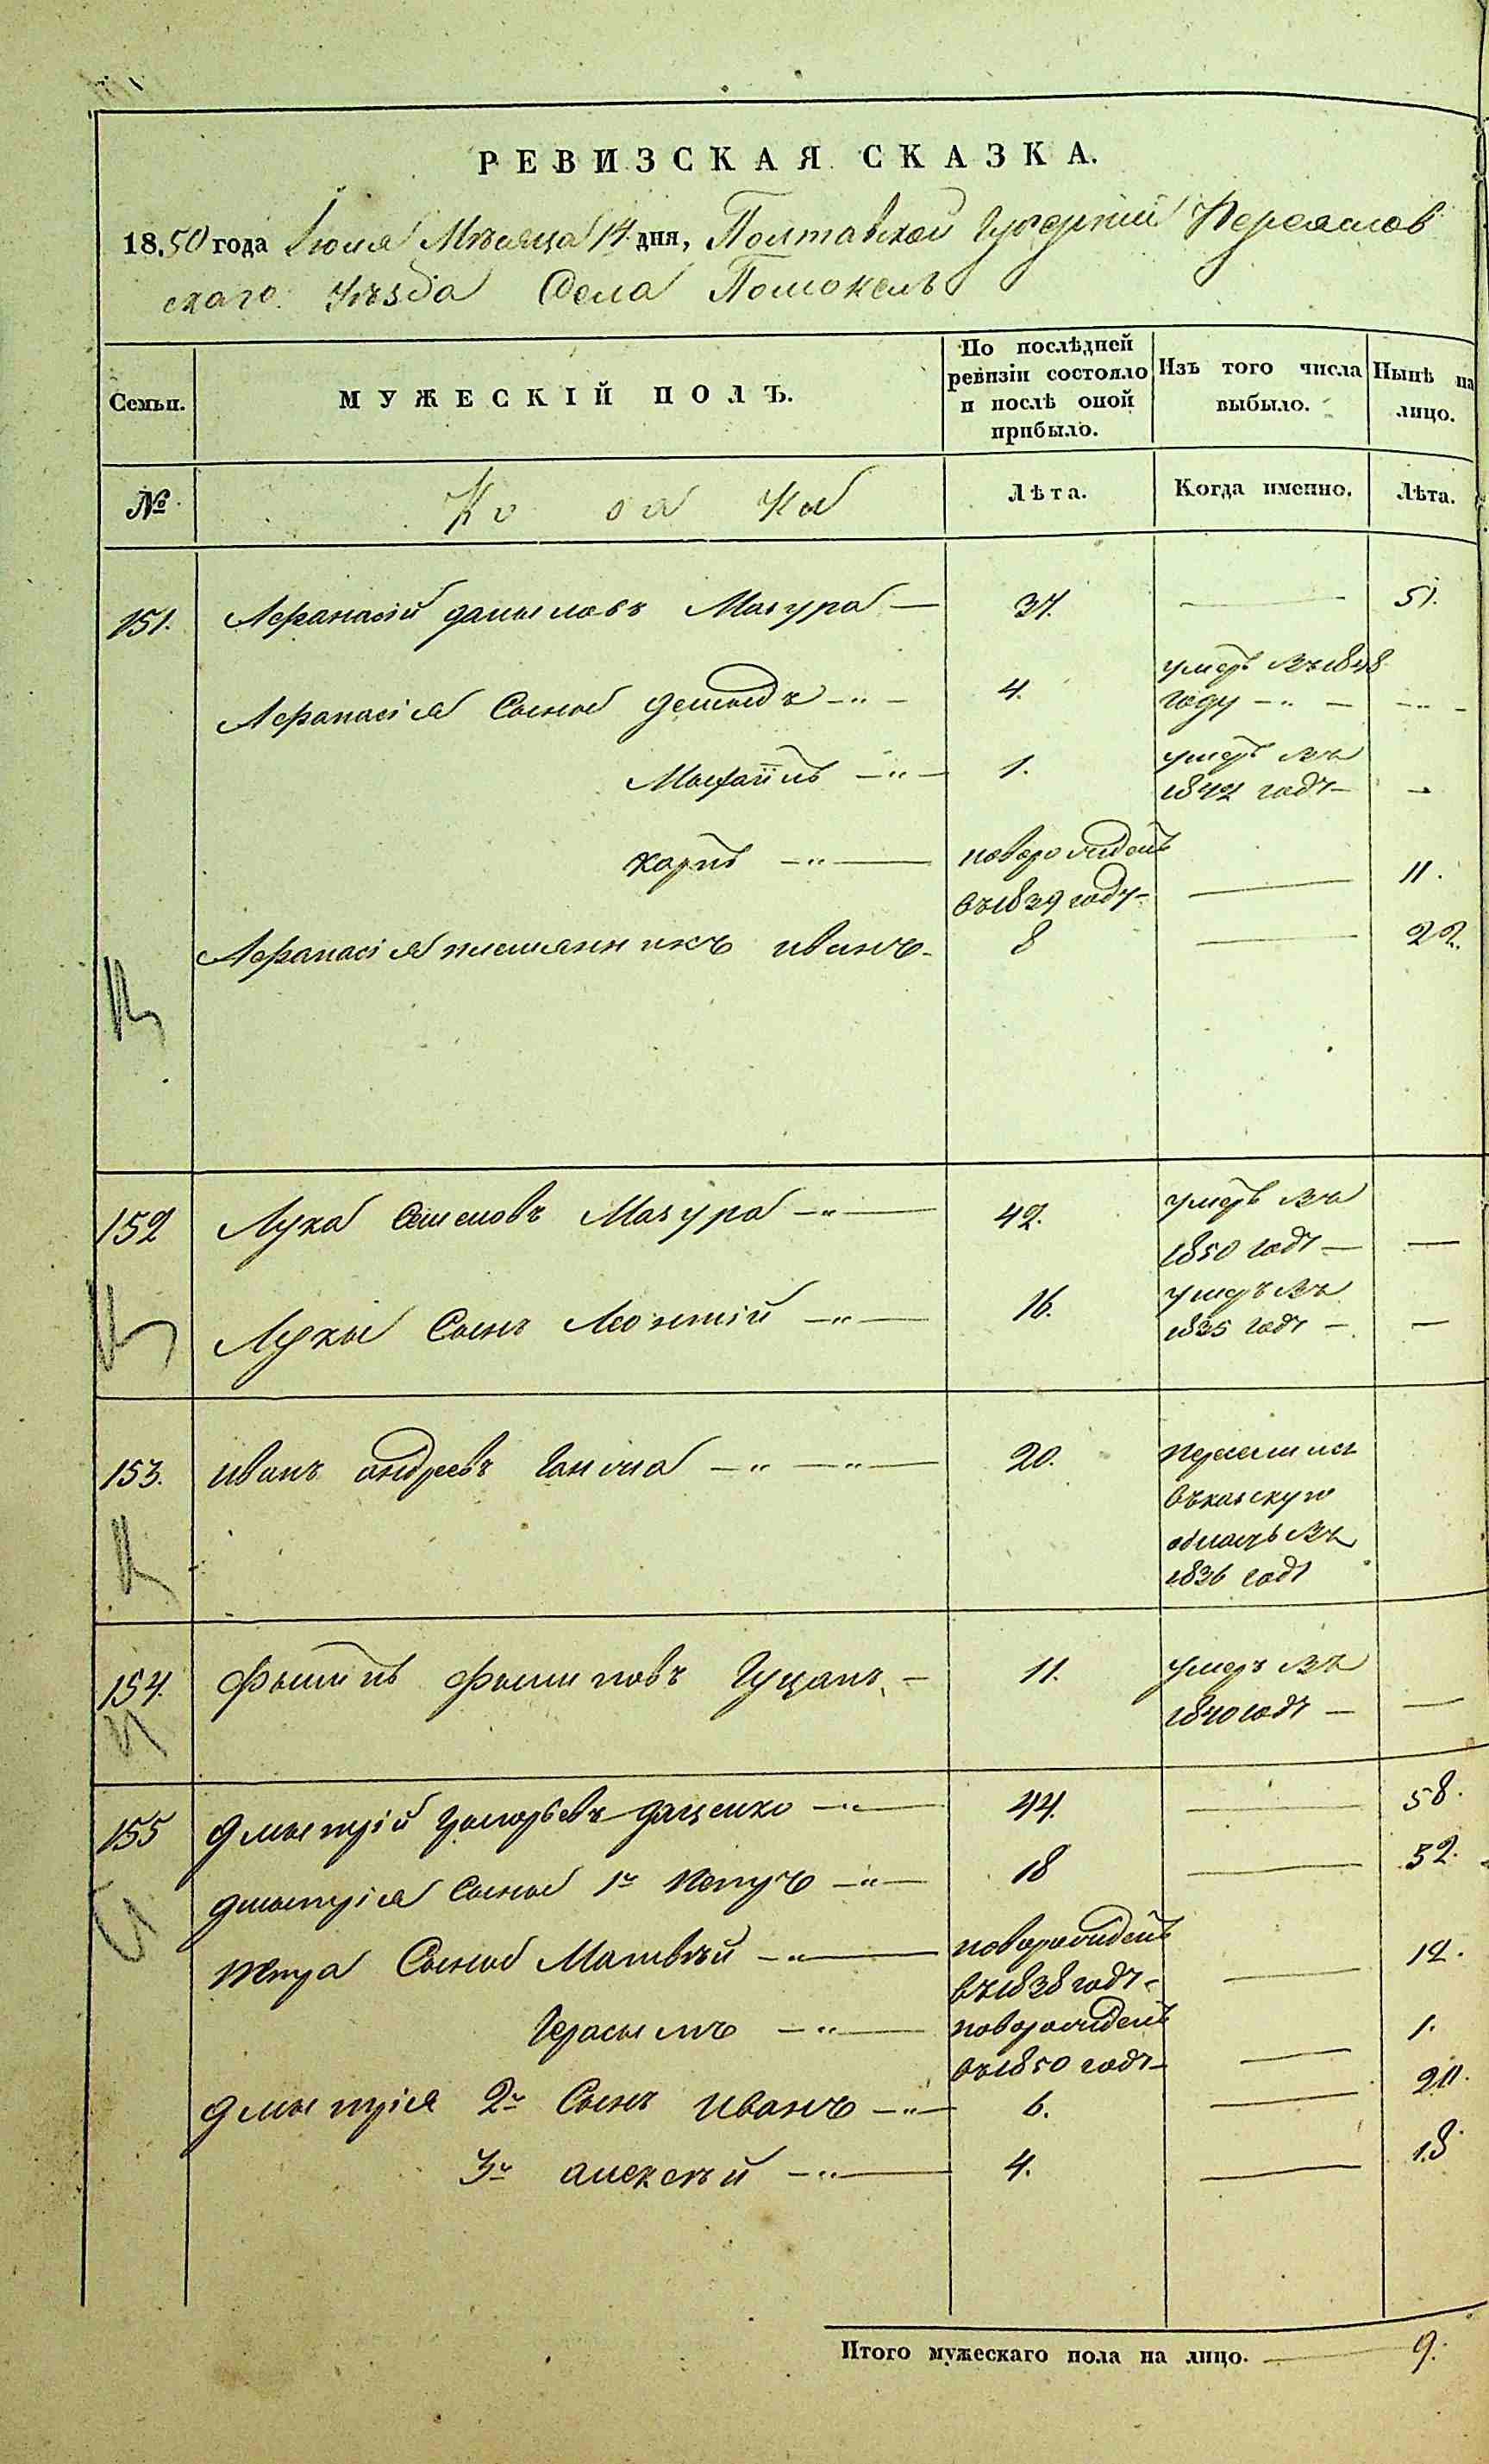 РЕВИЗСКАЯ СКАЗКА.
1850 года Июля Мѣсяца 14 дня, Полтавской Губернiи Переяслов
скаго Уѣзда Села Помоклъ
Семьи. МУЖЕСКІЙ ПОЛЪ. По послѣдней ревизіи состояло и послѣ оной прибыло. Изъ того числа выбыло. Нынѣ на лицо.
№ Лѣта. Когда именно. Лѣта.
151. Афанасiй даныловъ Мазура — 37. — 51.
Афанасiя Сыновъ демыдъ —„— 4. умеръ въ 1848 году —„— —„—
1. умеръ въ 1842 годѣ — —
карпъ —„— новорожденъ въ 1839 году — — 11.
Афанасiя племянникъ иванъ — 8 — 22.
152 Лука Семеновъ Мазура —„— 42. умеръ въ 1850 годѣ — —
Лукы Сынъ Леонтiй —„— 16. умеръ въ 1835 годѣ — —
153. иванъ андреевъ —„— —„— 20. переселился
область въ
1836 годѣ
154. Фылипъ Фылиповъ Гуцалъ — 11. умеръ въ 1840 годѣ — —
155 дмытрiй григорьевъ даценко —„— 44. — 58.
дмытрiя Сыновъ 1й петръ —„— 18 — 32.
петра Сыновъ Матвѣй —„— новорожденъ въ 1838 годѣ — — 12.
Герасымъ —„— новорожденъ въ 1850 годѣ — — 1.
дмытрiя 2й Сынъ иванъ —„— 6. — 20.
3й алексѣй —„— 4. — 18
Итого мужескаго пола на лицо. — 9.